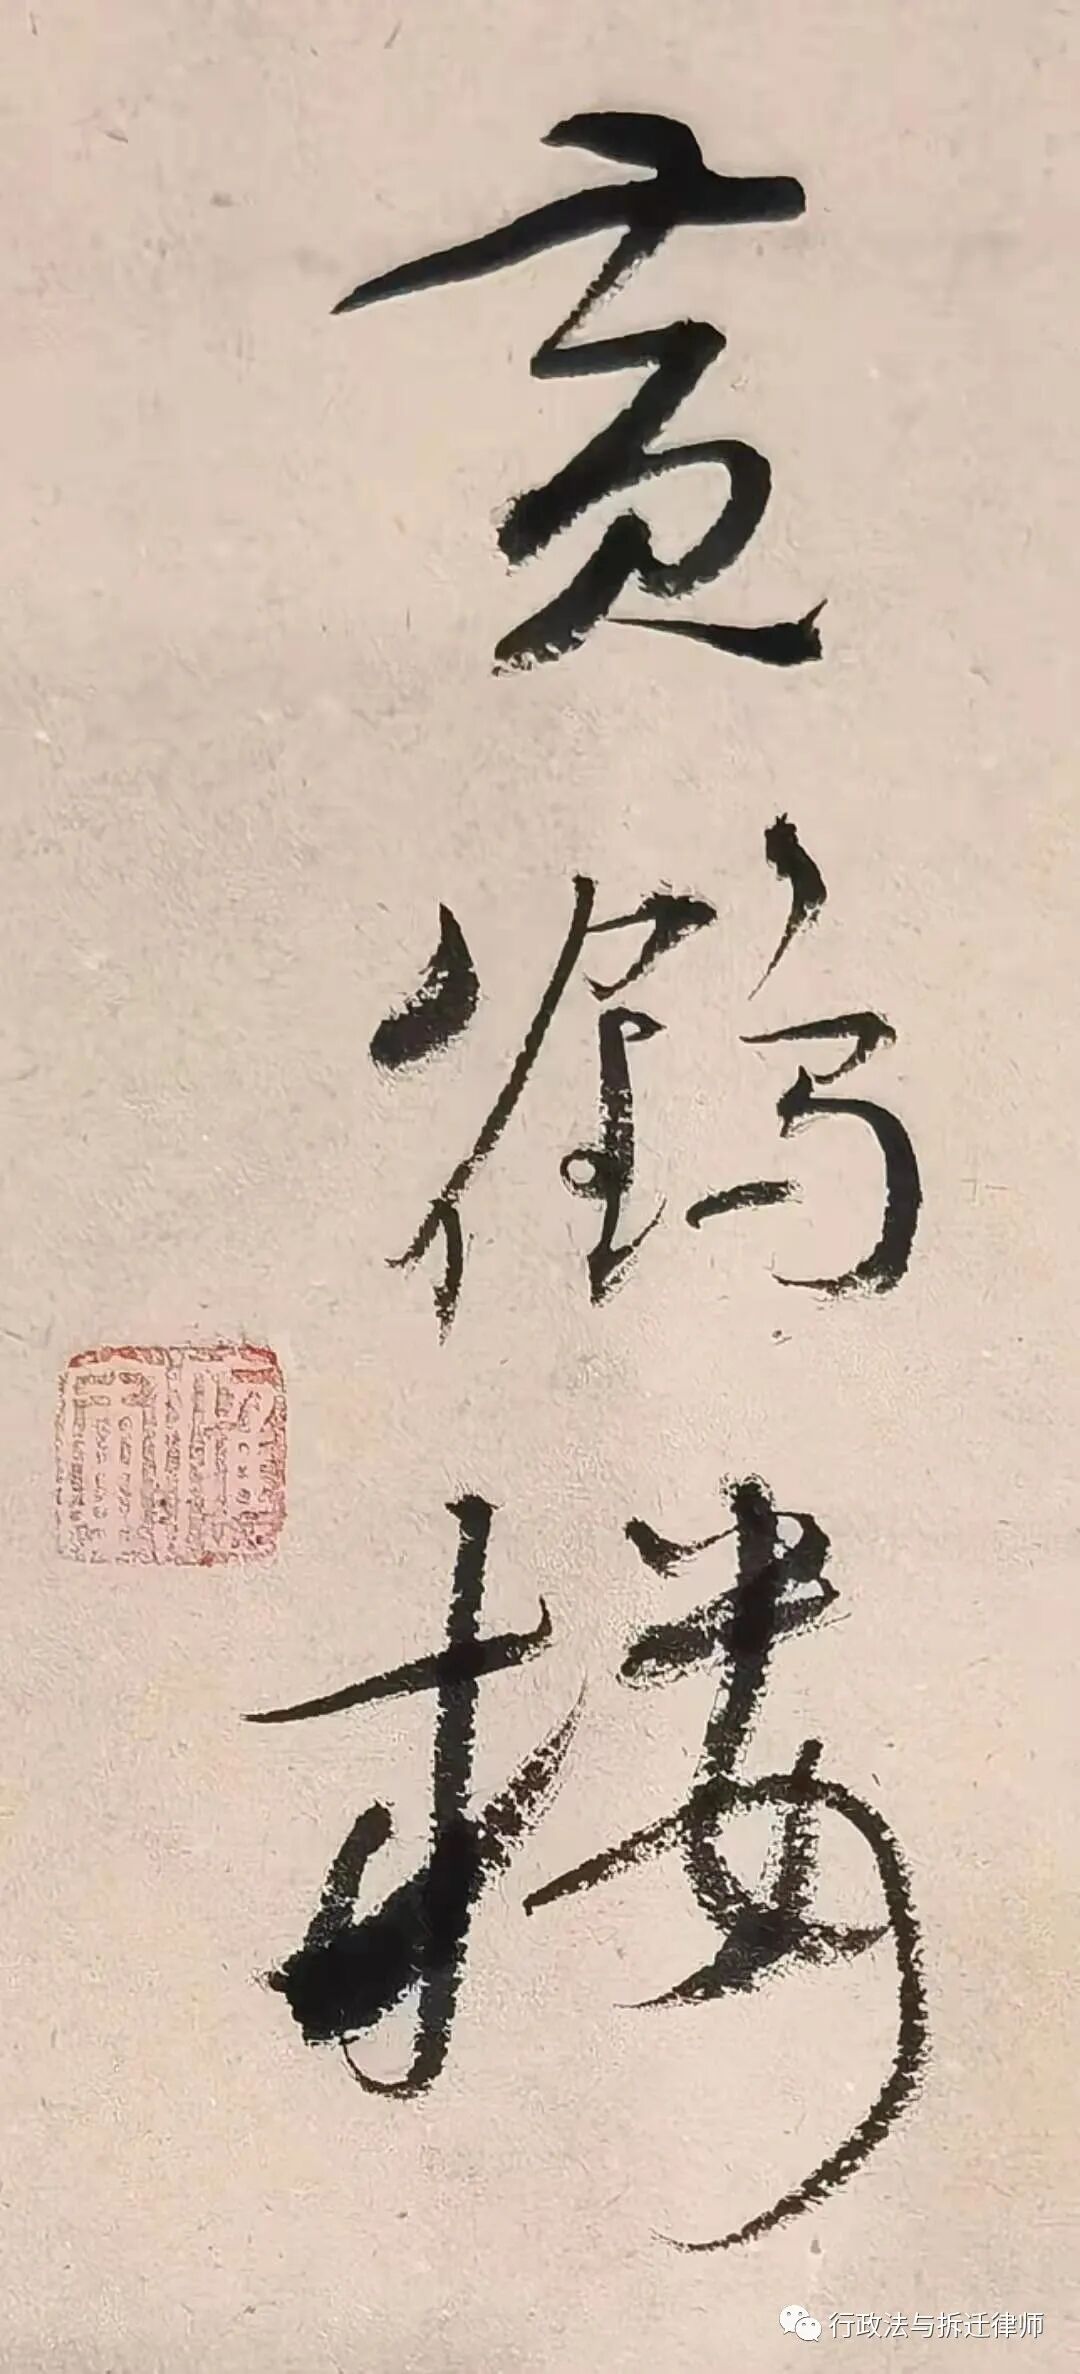 黄鹤楼
行政法与拆迁律师